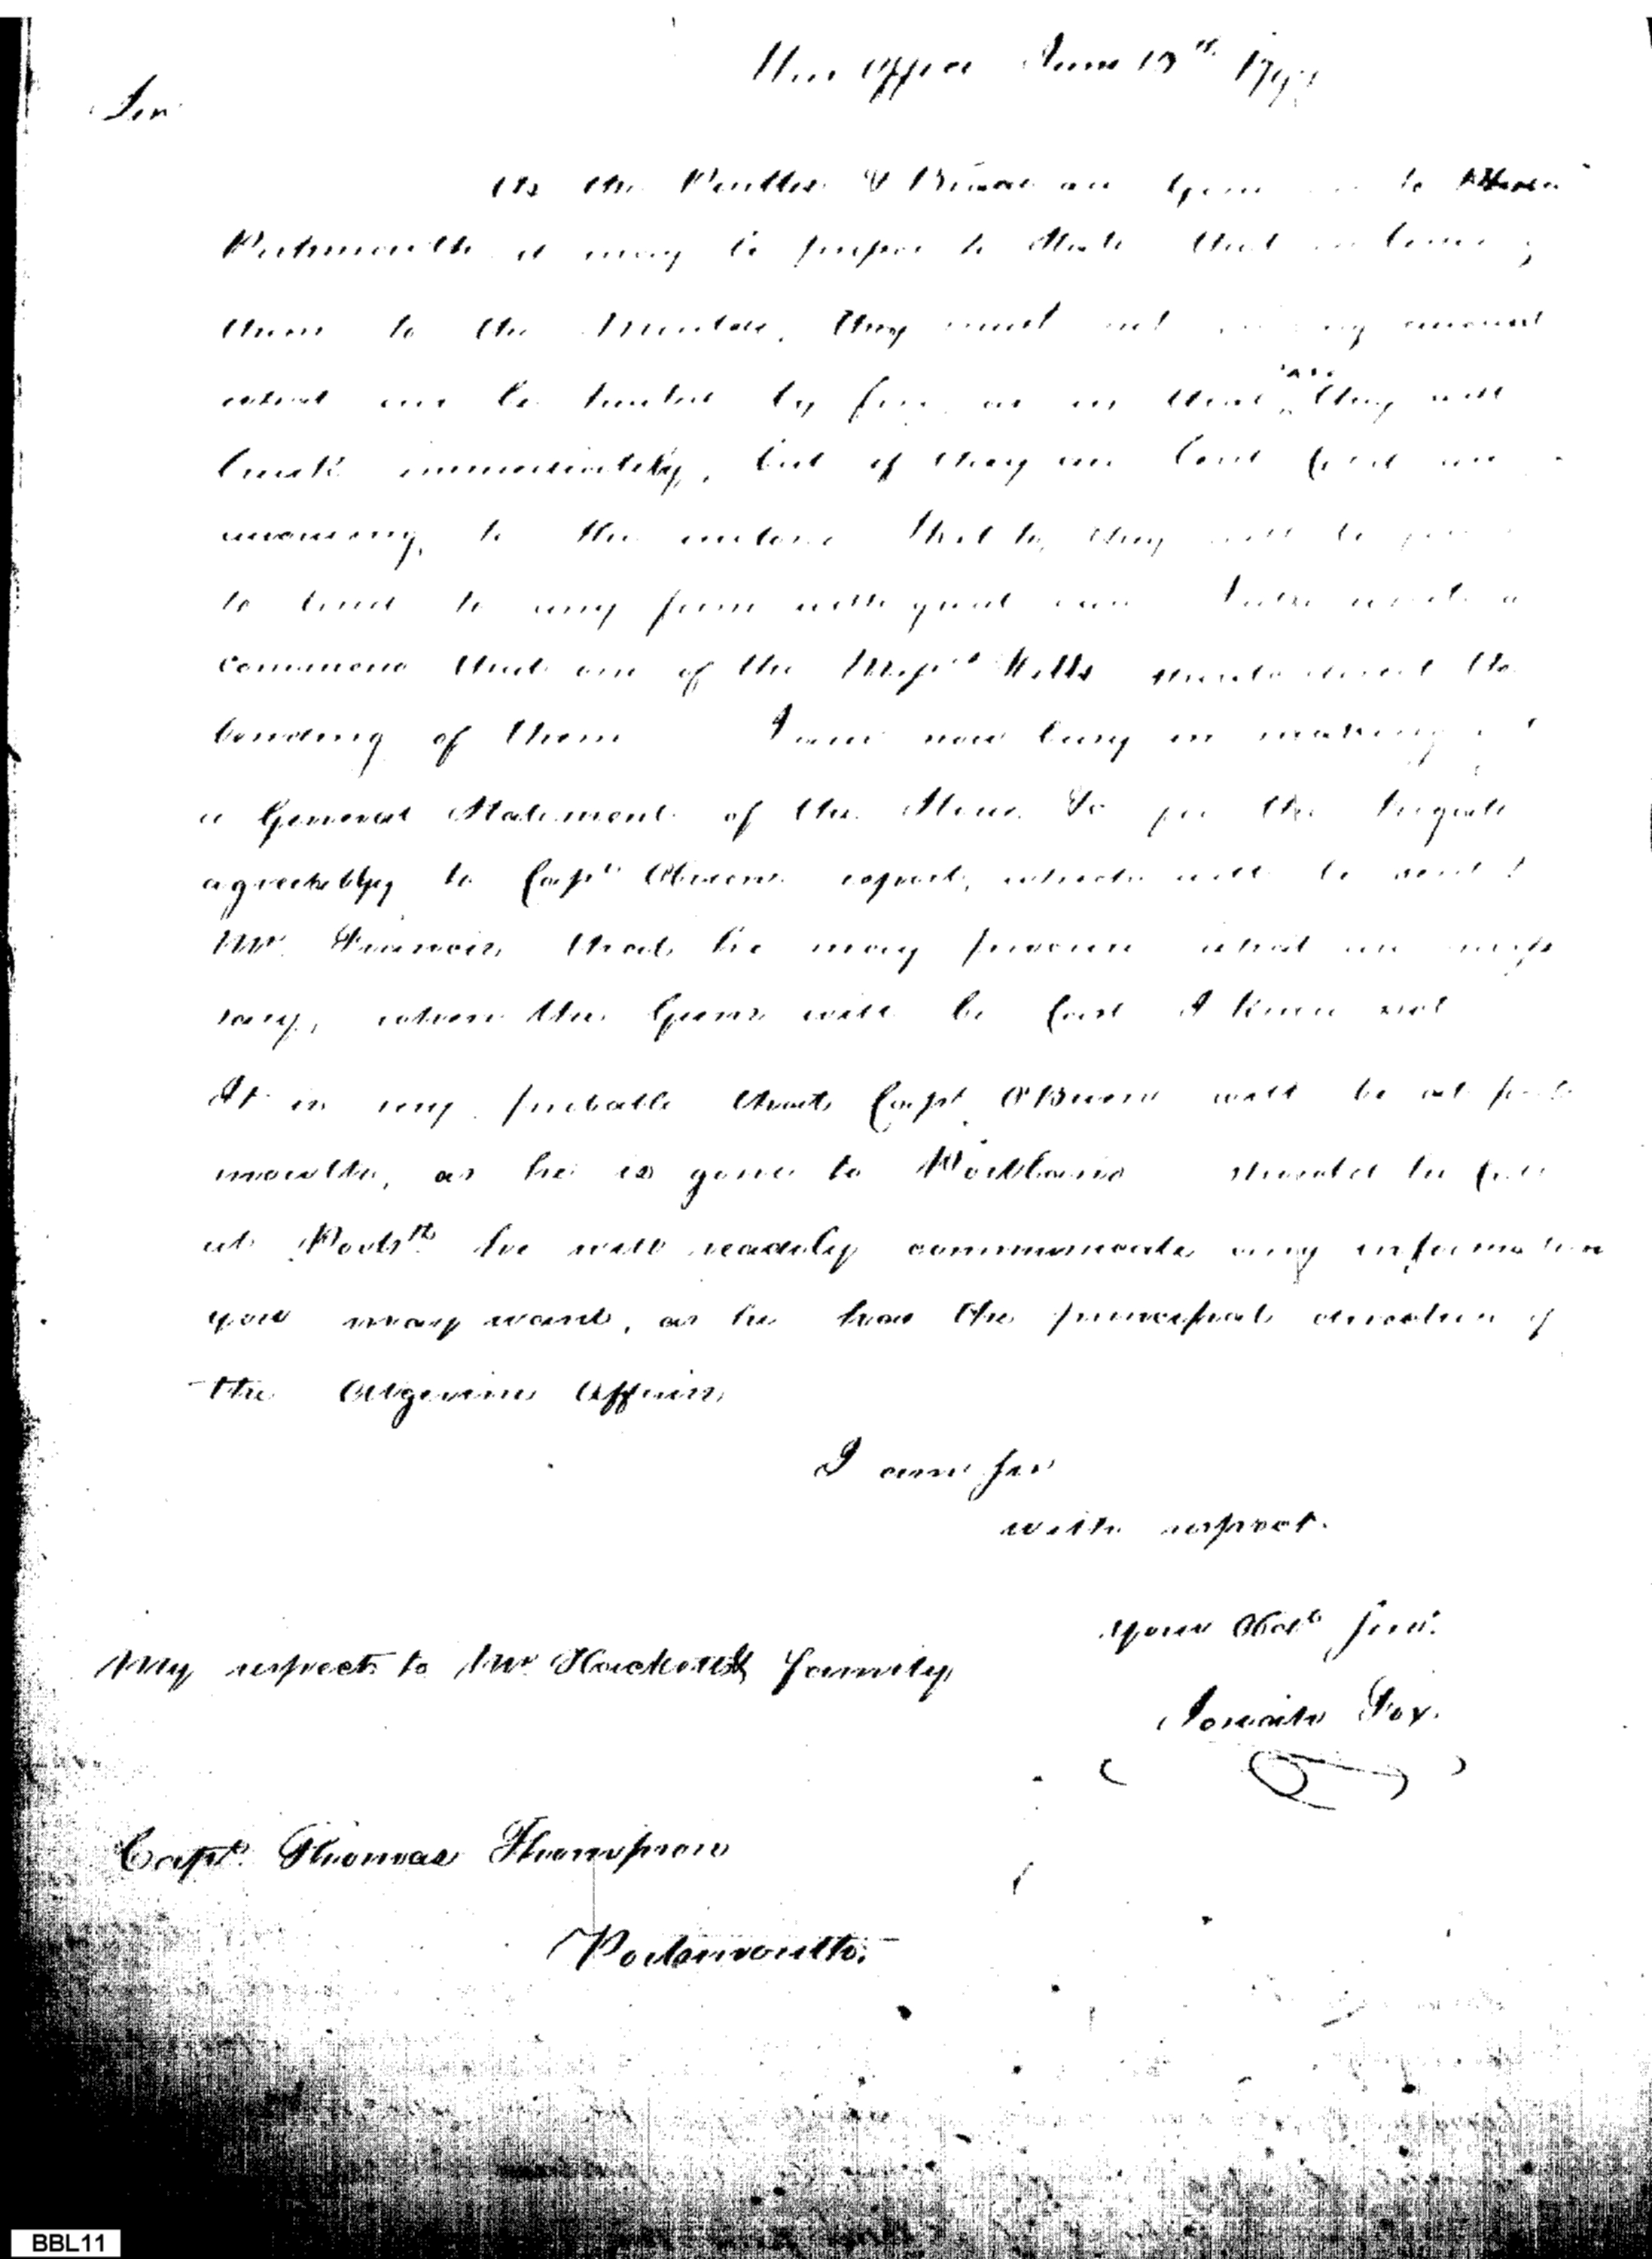 War Office June 13th 179
Sir
As the Pintles & Braces are gone to
Portsmouth it may be proper to state that in
them to the they must not on any account
what ever be heated by fire, as in that case they will
break immediately, but if they are bent cold
to the they will be
to bend to any form with great care
commend that one of the Messrs Hills should attend the
bending of them I am now busy in making
a General Statement of the Stores &c for the frigate
agreeably to Capt OBriens report, which will be sent
Mr. Francis that he may procure what are neces
sary, when the Guns will be Cast I know not
It is very probable that Capt OBrien will be at ports
mouth, as he is gone to Portland should he call
at Portsth he will readily communicate any information
you may want, as he has the principal direction of
the Algerine Affairs
I am Sir
with respect.
your Obdt Servt.
My respects to Mr Hacketts family
Josiah Fox.
Capt. Thomas Thompson
Portsmouth.
BBL11